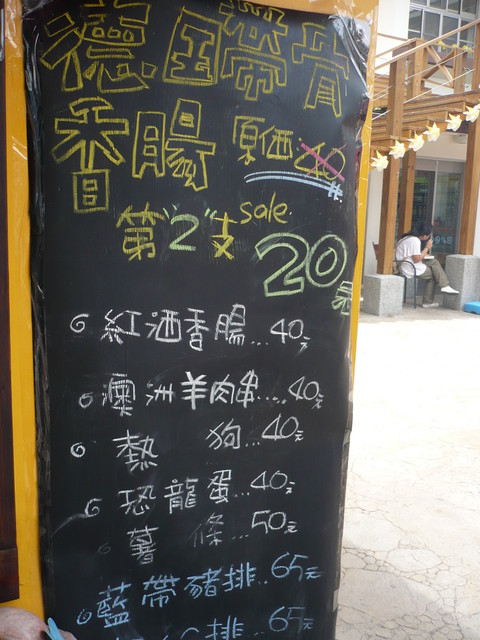 德国帶骨
香腸 原価:40
第"2"支 sale
20元
紅酒香腸...40元
澳洲羊肉串....40元
熱 狗...40元
恐龍蛋...40元
薯 條...50元
藍帶豬排..65元
排..65元